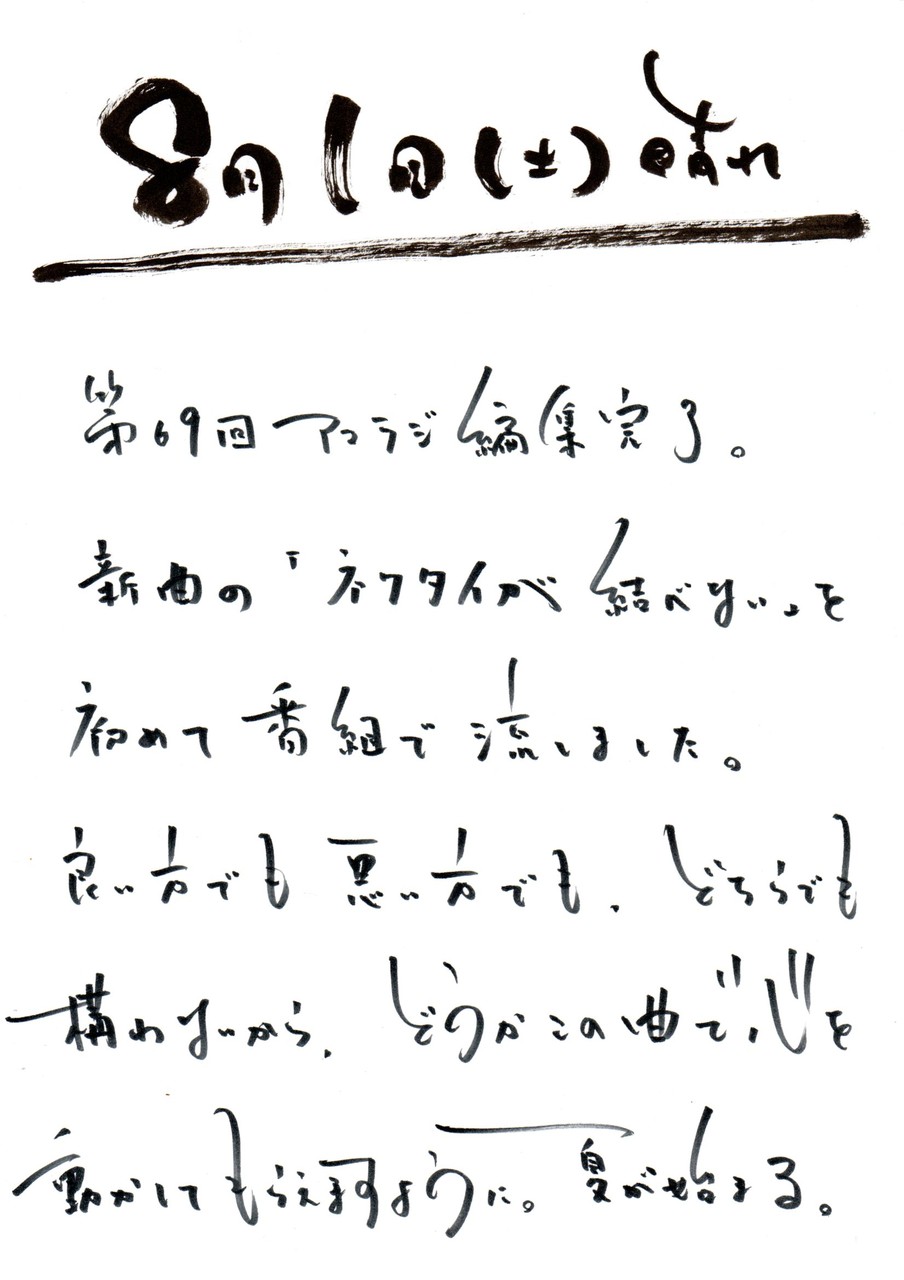 8月1日(土)晴れ
第69回アコラジ編集完了。
新曲の「ネクタイが結べない」を
初めて番組で流しました。
良い方でも悪い方でも、どちらでも
構わないから、どうかこの曲で心を
動かしてもらえますように。夏が始まる。